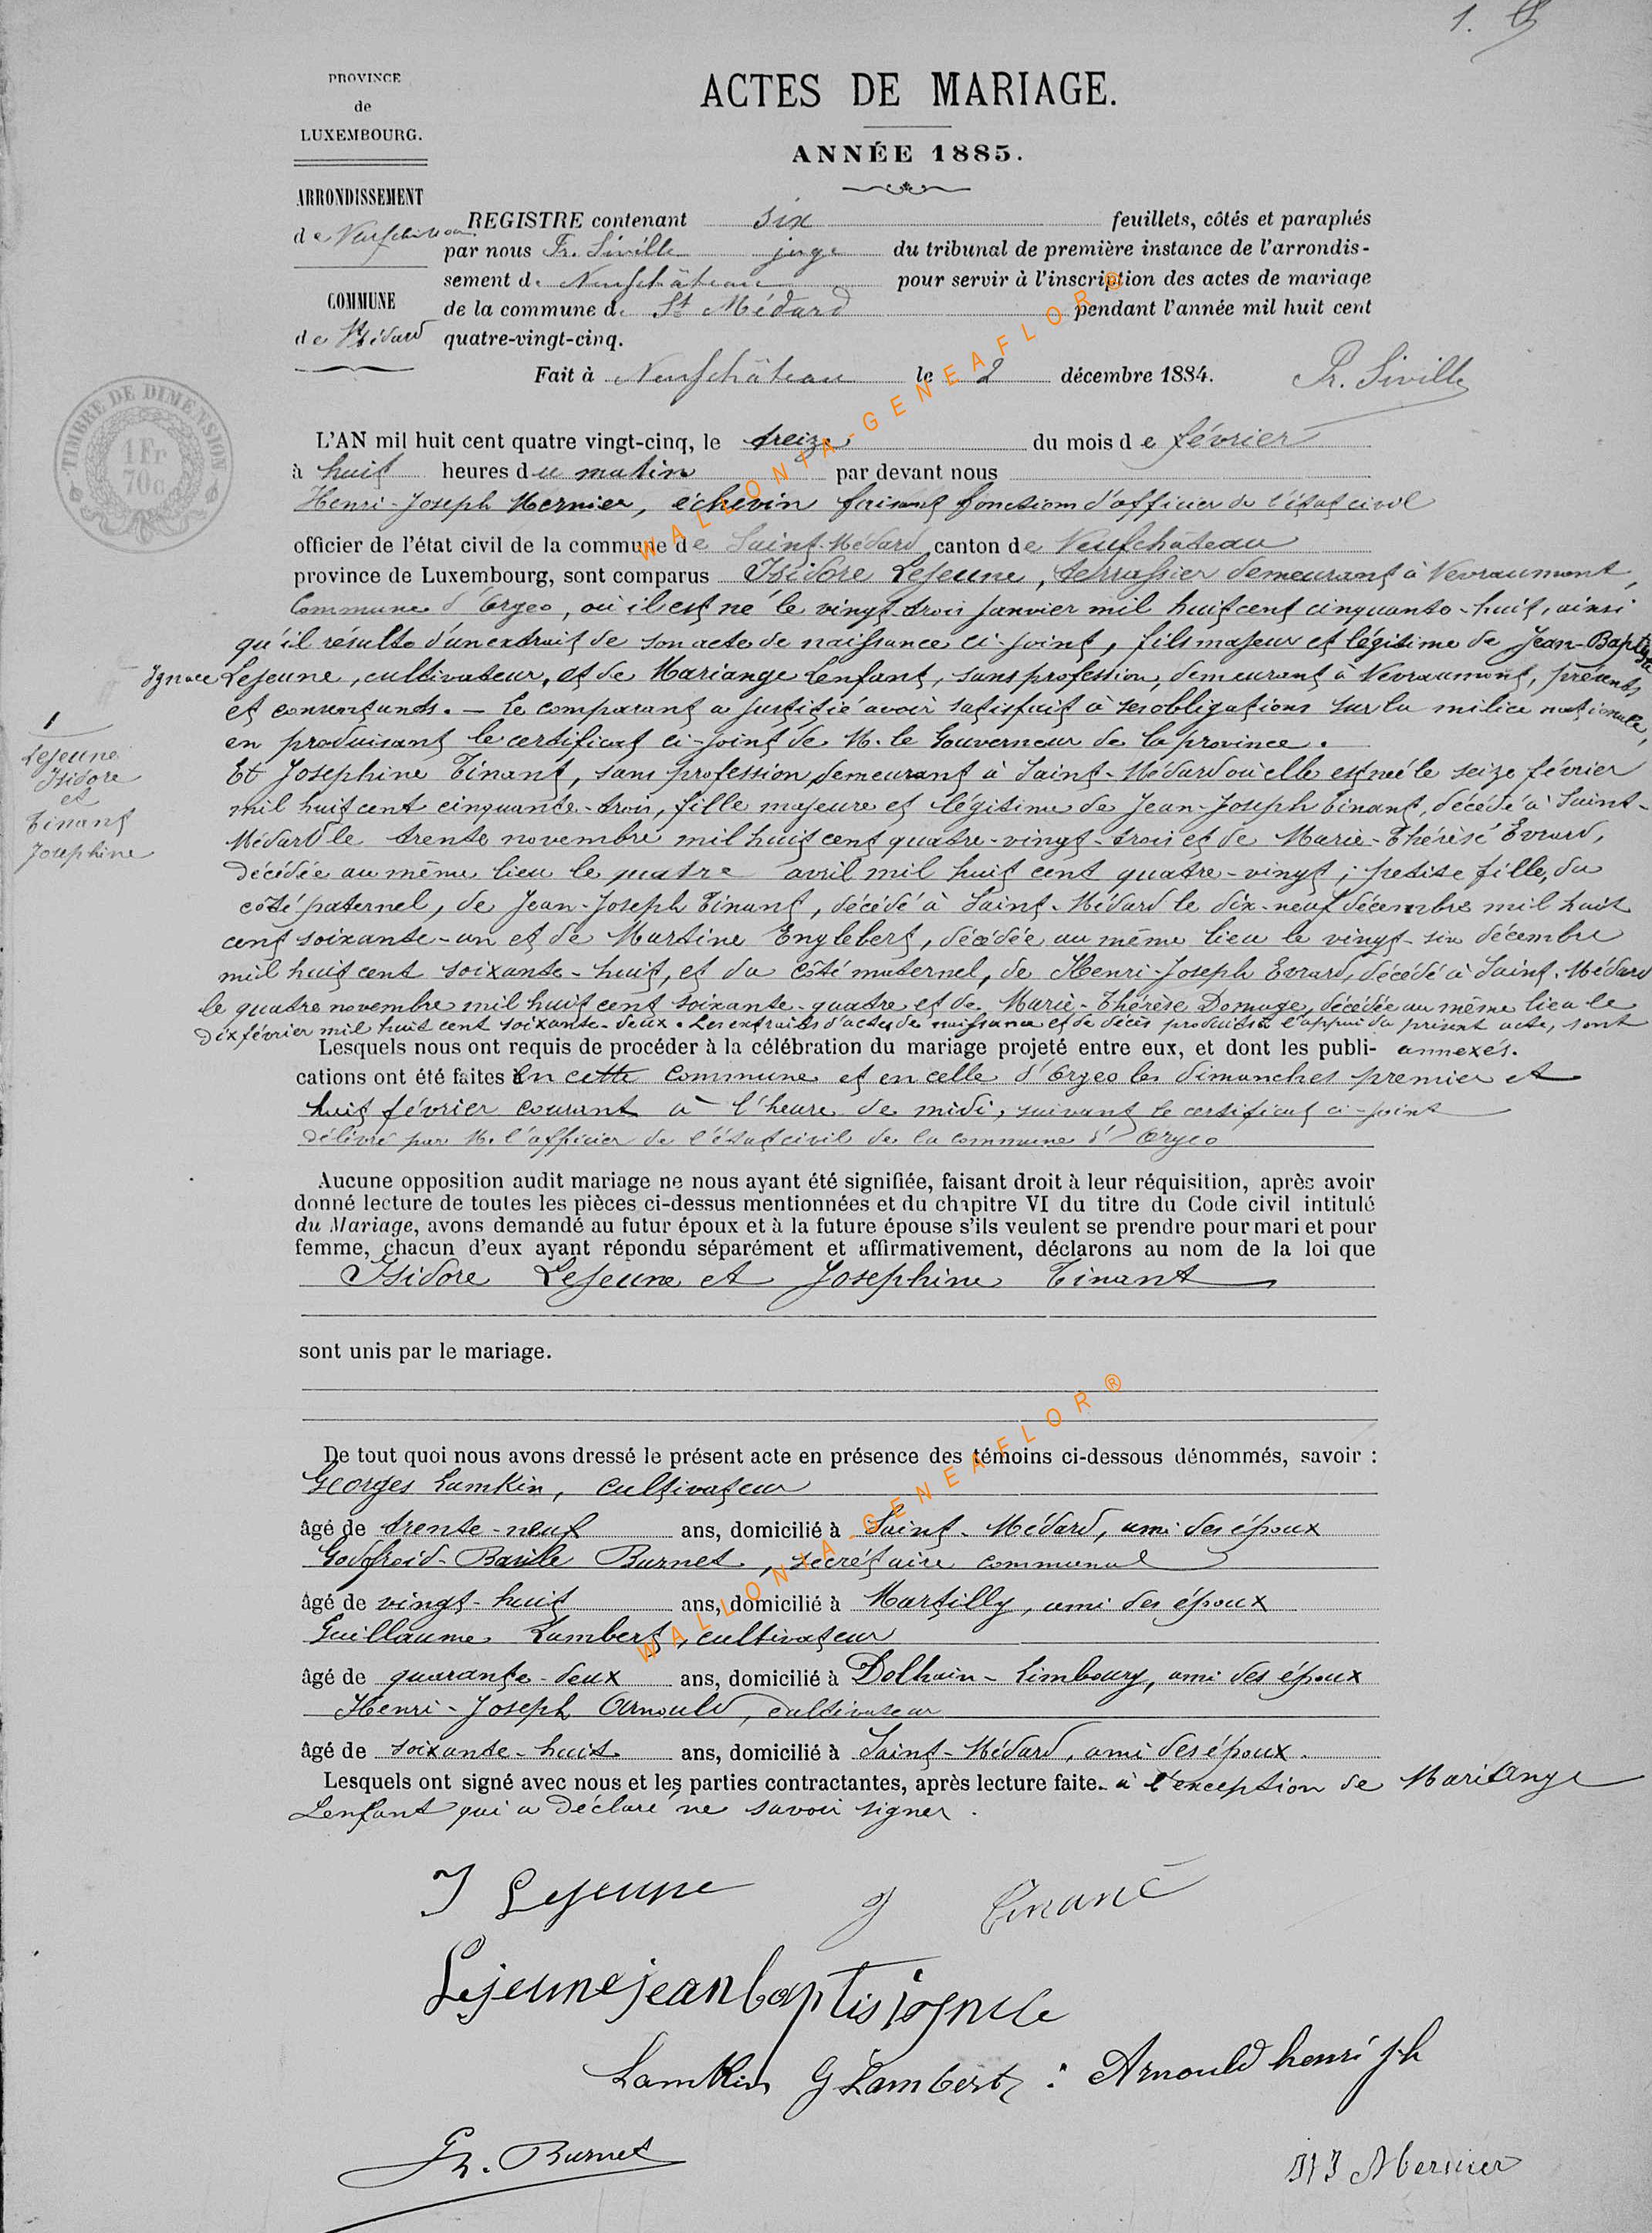 1.
PROVINCE
de
LUXEMBOURG.
ARRONDISSEMENT
de Neufchâteau
COMMUNE
de St Médard
ACTES DE MARIAGE.
ANNÉE 1885.
REGISTRE contenant six feuillets, côtés et paraphés
par nous Fr. Siville juge du tribunal de première instance de l'arrondis-
sement de Neufchâteau pour servir à l'inscription des actes de mariage
de la commune de St Médard pendant l'année mil huit cent
quatre-vingt-cinq.
Fait à Neufchâteau le 2 décembre 1884. Fr. Siville
TIMBRE DE DIMENSION
1 Fr
70c
L'AN mil huit cent quatre vingt-cinq, le treize du mois de février
à huit heures du matin par devant nous
Henri-Joseph Mernier, échevin faisant fonctions d'officier de l'état civil
officier de l'état civil de la commune de Saint-Médard canton de Neufchâteau
province de Luxembourg, sont comparus Isidore Lejeune, terrassier demeurant à Nevraumont,
Commune d'Orgeo, où il est né le vingt trois janvier mil huit cent cinquante-huit, ainsi
qu'il résulte d'un extrait de son acte de naissance ci-joint, fils majeur et légitime de Jean-Baptiste
Ignace Lejeune, cultivateur, et de Mariange Lenfant, sans profession, demeurant à Nevraumont, présents
et consentants. — Le comparant a justifié avoir satisfait à ses obligations sur la milice nationale,
en produisant le certificat ci-joint de M. le Gouverneur de la province.
Et Josephine Tinant, sans profession demeurant à Saint-Médard où elle est née le seize février
mil huit cent cinquante-trois, fille majeure et légitime de Jean-Joseph Tinant, décédé à Saint-
Médard le trente novembre mil huit cent quatre-vingt-trois et de Marie-Thérèse Evrard,
décédée au même lieu le quatre avril mil huit cent quatre-vingt; petite fille, du
côté paternel, de Jean-Joseph Tinant, décédé à Saint-Médard le dix-neuf décembre mil huit
cent soixante-un et de Martine Englebert, décédée au même lieu le vingt-six décembre
mil huit cent soixante-huit, et du côté maternel, de Henri-Joseph Evrard, décédé à Saint-Médard
le quatre novembre mil huit cent soixante-quatre et de Marie-Thérèse Domage, décédée au même lieu le
dix février mil huit cent soixante-deux. Les extraits d'actes de naissance et de décès produits à l'appui du présent acte, sont
annexés.
1
Lejeune
Isidore
et
Tinant
Josephine
Lesquels nous ont requis de procéder à la célébration du mariage projeté entre eux, et dont les publi-
cations ont été faites en cette commune et en celle d'Orgeo les dimanches premier et
huit février courant à l'heure de midi, suivant le certificat ci-joint
délivré par M. l'officier de l'état civil de la commune d'Orgeo
Aucune opposition audit mariage ne nous ayant été signifiée, faisant droit à leur réquisition, après avoir
donné lecture de toutes les pièces ci-dessus mentionnées et du chapitre VI du titre du Code civil intitulé
du Mariage, avons demandé au futur époux et à la future épouse s'ils veulent se prendre pour mari et pour
femme, chacun d'eux ayant répondu séparément et affirmativement, déclarons au nom de la loi que
Isidore Lejeune et Josephine Tinant
sont unis par le mariage.
De tout quoi nous avons dressé le présent acte en présence des témoins ci-dessous dénommés, savoir :
Georges Lamkin, cultivateur
âgé de trente-neuf ans, domicilié à Saint-Médard, ami des époux
Godfroid-Basile Burnet, secrétaire communal
âgé de vingt-huit ans, domicilié à Martilly, ami des époux
Guillaume Lambert, cultivateur
âgé de quarante-deux ans, domicilié à Dolhain-Limbourg, ami des époux
Henri-Joseph Arnould, cultivateur
âgé de soixante-huit ans, domicilié à Saint-Médard, ami des époux.
Lesquels ont signé avec nous et les parties contractantes, après lecture faite. à l'exception de Mariange
Lenfant qui a déclaré ne savoir signer.
J Lejeune J Tinant
Lejeune jean baptis ignace
Lamkin G Lambert : Arnould henri jh
Burnet HJ Mernier
WALLONIA-GENEAFLOR®
WALLONIA-GENEAFLOR®